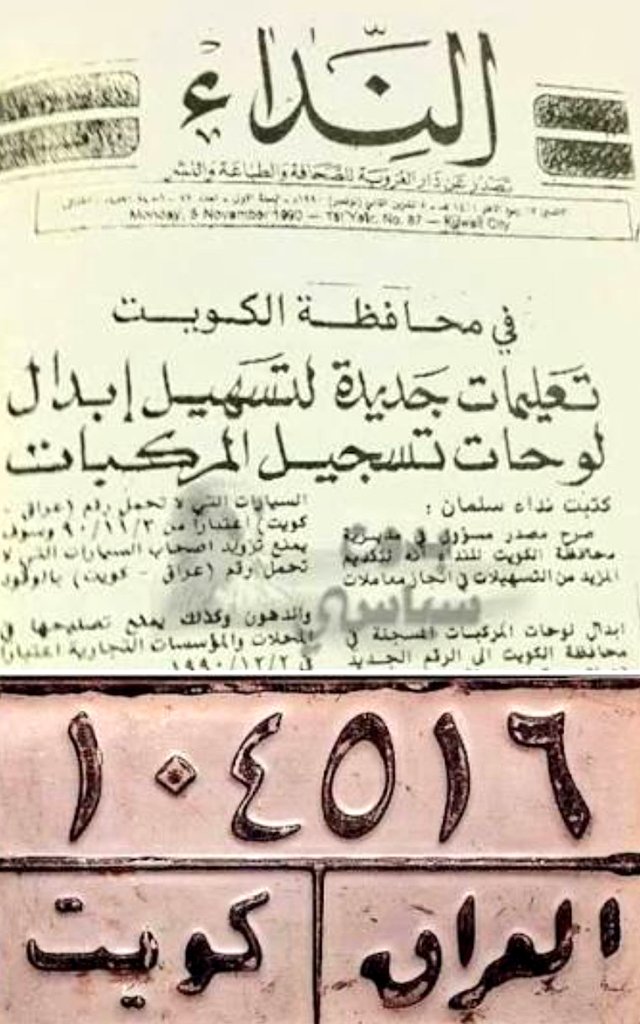 النداء
تصدر عن دار العروبة للصحافة والطباعة والنشر
Monday, 5 November 1990 — 1st Year, No. 87 — Kuwait City
في محافظة الكويت
تعليمات جديدة لتسهيل إبدال
لوحات تسجيل المركبات
كتبت نداء سلمان :
صرح مصدر مسؤول في مديرية
محافظة الكويت للنداء انه لتقديم
المزيد من التسهيلات في انجاز معاملات
ابدال لوحات المركبات المسجلة في
محافظة الكويت الى الرقم الجديد
السيارات التي لا تحمل رقم (عراق -
كويت) اعتبارا من ٩٠/١١/٣ وسوف
يمنع تزويد اصحاب السيارات التي لا
تحمل رقم (عراق - كويت) بالوقود
والدهون وكذلك يمنع تصليحها في
المحلات والمؤسسات التجارية اعتبارا
سياسي
١٠٤٥١٦
العراق كويت